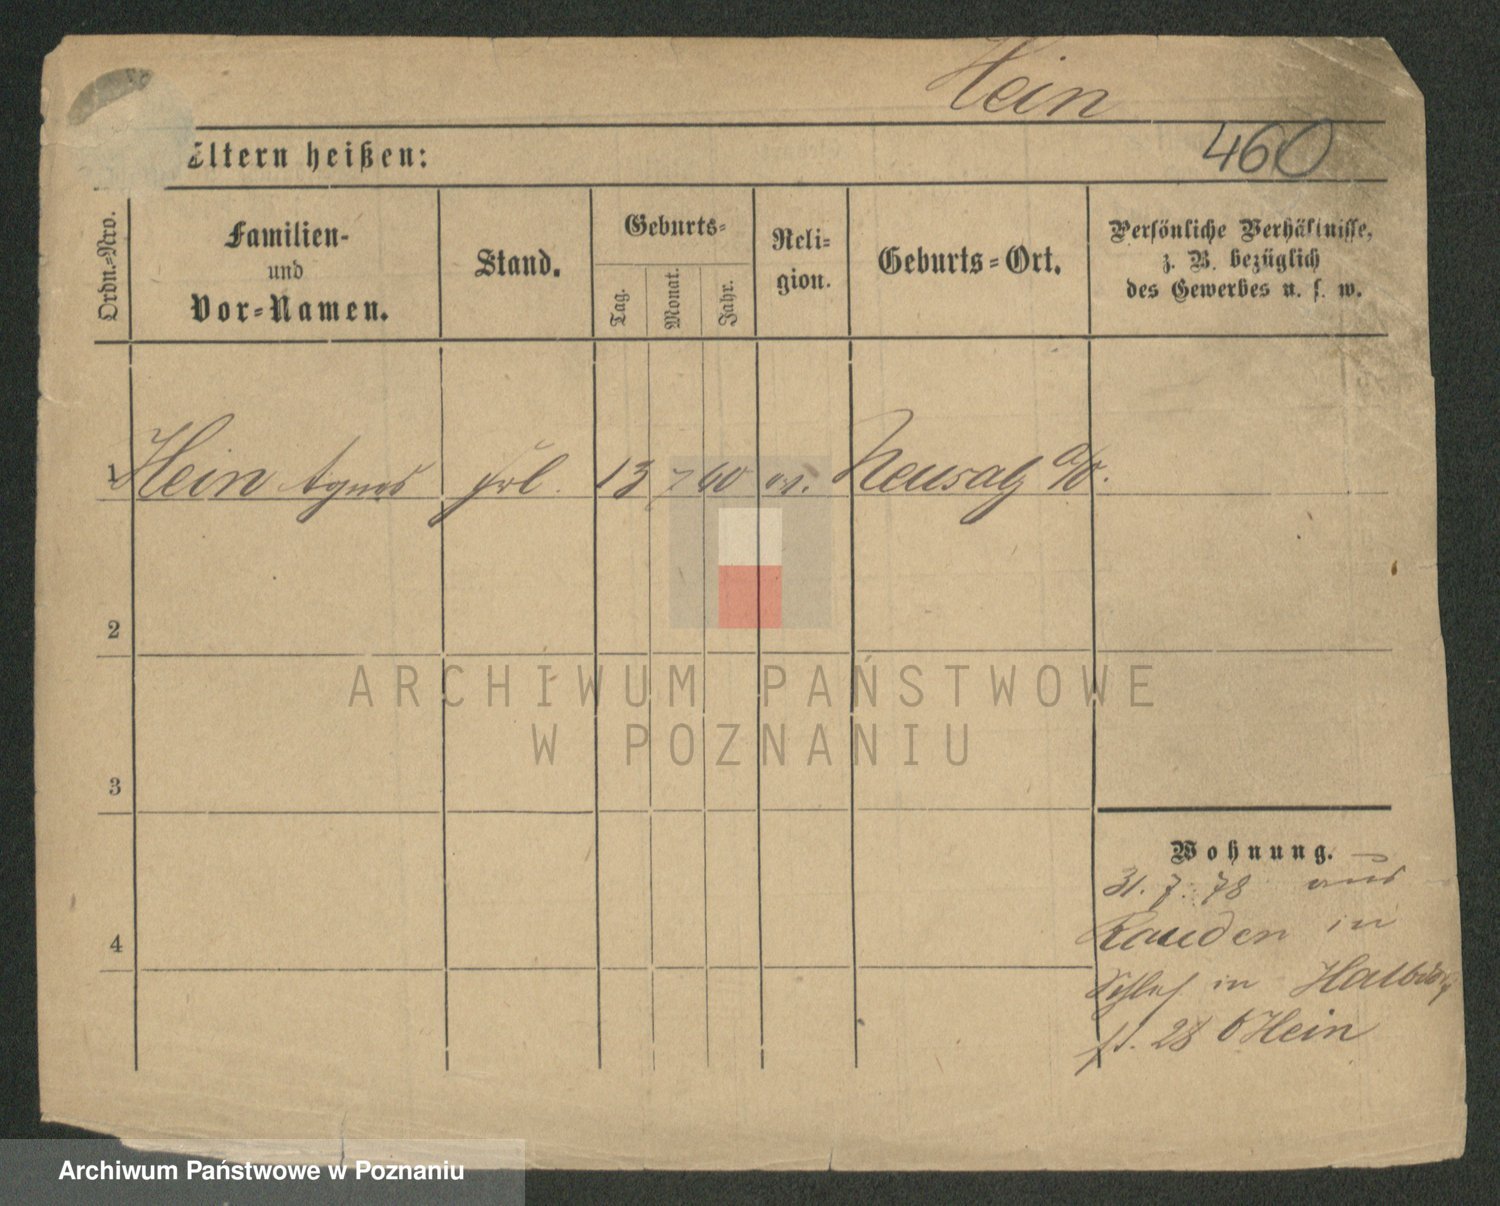 Hein
460
Eltern heißen:
Ordn.-Nro.
Familien-
und
Vor-Namen.
Stand.
Geburts-
Tag.
Monat.
Jahr.
Reli-
gion.
Geburts-Ort.
Persönliche Verhältnisse,
z. B. bezüglich
des Gewerbes u. s. w.
1 Hein Agnes Frl. 13 7 60 ev. Neusalz a/O.
2
3
4
Wohnung.
31. 7. 78 aus
Rauden in
in
28 b Hein
ARCHIWUM PAŃSTWOWE
W POZNANIU
Archiwum Państwowe w Poznaniu